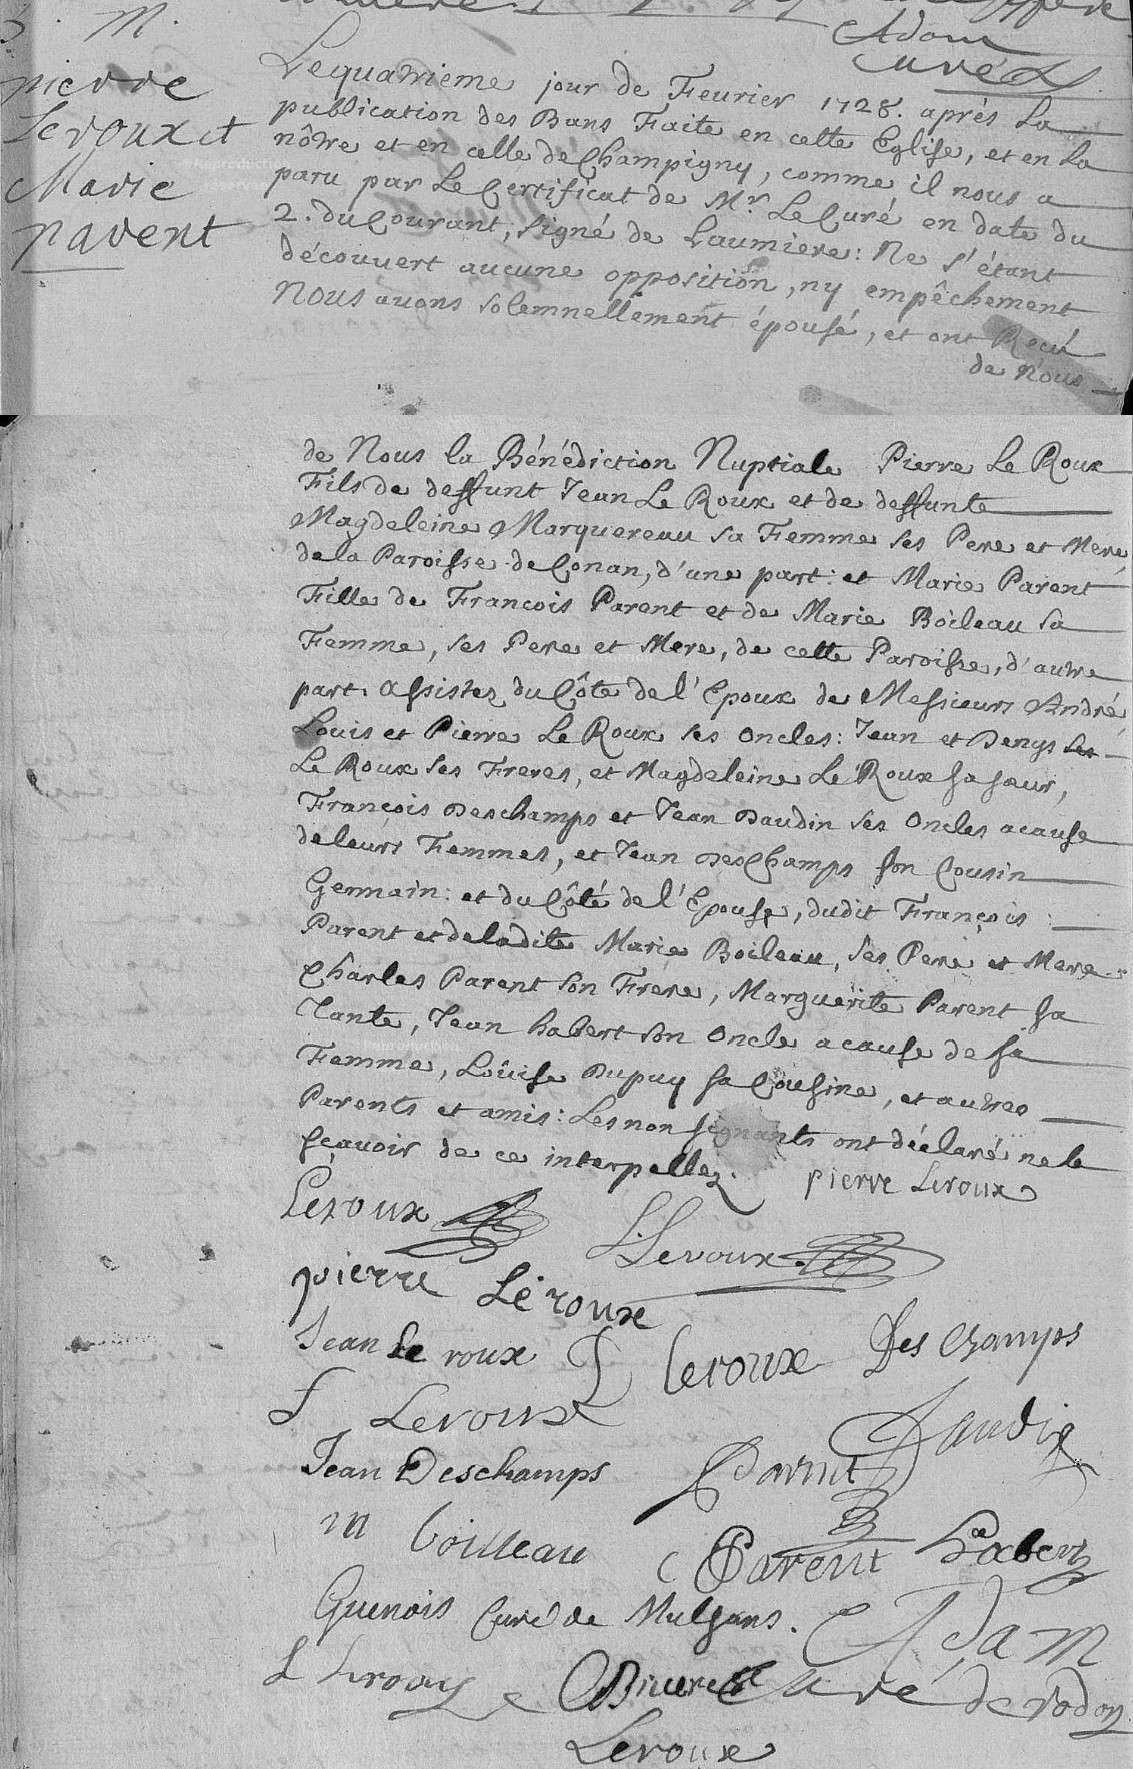 M.
pierre
Leroux et
Marie
parent
Adam
Curé
Le quatrieme jour de Feurier 1728. après La
publication des Bans Faite en cette Eglise, et en La
nôtre et en celle de Champigny, comme il nous a
paru par Le Certificat de Mr. Le Curé en date du
2. du Courant, signé de Laumiere: Ne s'étant
découvert aucune opposition, ny empêchement
Nous auons solemnellement épousé, et ont Reçu
de Nous
de Nous la Bénédiction Nuptiale Pierre Le Roux
Fils de deffunt Jean Le Roux et de deffunte
Magdeleine Marquereau sa Femme ses Pere et Mere,
de la Paroisse de Conan, d'une part: et Marie Parent
Fille de Francois Parent et de Marie Boileau sa
Femme, ses Pere et Mere, de cette Paroisse, d'autre
part. assistez du Côté de l'Epoux de Messieurs André
Louis et Pierre Le Roux ses Oncles: Jean et Denys ses
Le Roux ses Freres, et Magdeleine Le Roux sa sœur,
François Deschamps et Jean Daudin ses Oncles acause
de leurs Femmes, et Jean DesChamps son Cousin
Germain: et du Côté de l'Epouse, dudit François
Parent et deladite Marie Boileau, ses Pere et Mere
Charles Parent son Frere, Marguerite Parent sa
Tante, Jean habert son Oncle acause de sa
Femme, Loüise Dupuy sa Cousine, et autres
Parents et amis: Les non signants ont déclaré ne le
sçauoir de ce interpellez. pierre Leroux
Leroux L Leroux
pierre Leroux
Jean Le roux D leroux Des Champs
f Leroux Daudin
Jean Deschamps Parent
m boilleau C Parent habert
Guenois Curé de Mulsans. Adam
Curé de rodon
Leroux